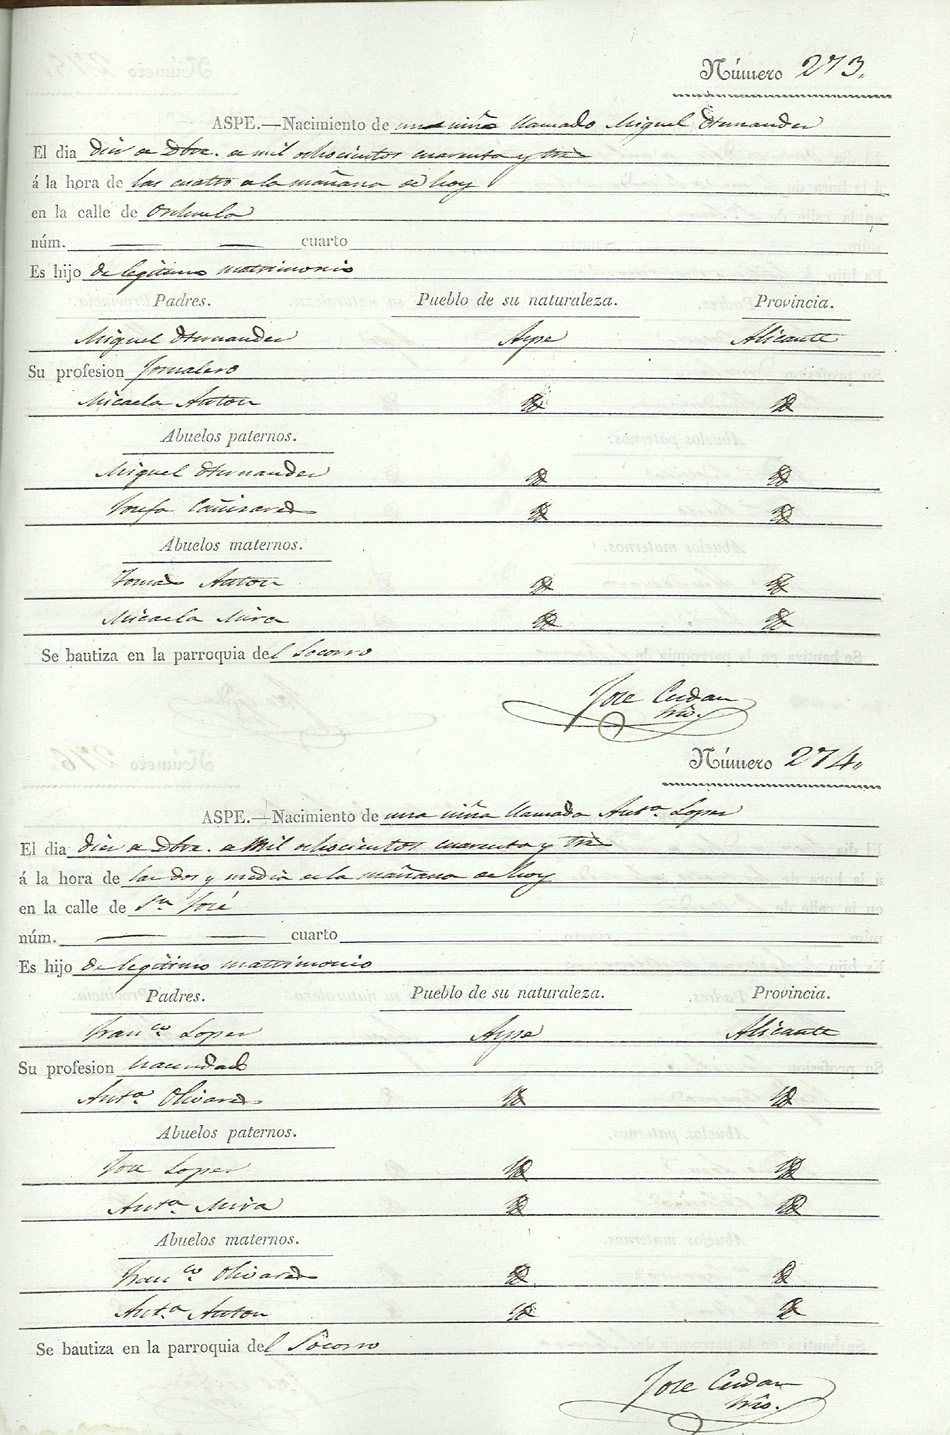 Número 273.
ASPE.—Nacimiento de un niño llamado Miguel Hernandez
El dia diez de Dbre. de mil ochocientos cuarenta y tres
á la hora de las cuatro de la mañana de hoy
en la calle de Orihuela
núm. — — cuarto
Es hijo de legitimo matrimonio
Padres. Pueblo de su naturaleza. Provincia.
Miguel Hernandez Aspe Alicante
Su profesion Jornalero
Micaela Anton
Abuelos paternos.
Miguel Hernandez
Josefa Cañizares
Abuelos maternos.
Tomas Anton
Micaela Mira
Se bautiza en la parroquia del Socorro
Jose Cerdan
Número 274.
ASPE.—Nacimiento de una niña llamada Anta. Lopez
El dia diez de Dbre. de mil ochocientos cuarenta y tres
á la hora de las dos y media de la mañana de hoy
en la calle de Sn. José
núm. — — cuarto
Es hijo de legitimo matrimonio
Padres. Pueblo de su naturaleza. Provincia.
Franco. Lopez Aspe Alicante
Su profesion
Anta. Olivares
Abuelos paternos.
Jose Lopez
Anta. Mira
Abuelos maternos.
Franco. Olivares
Anta. Anton
Se bautiza en la parroquia del Socorro
Jose Cerdan